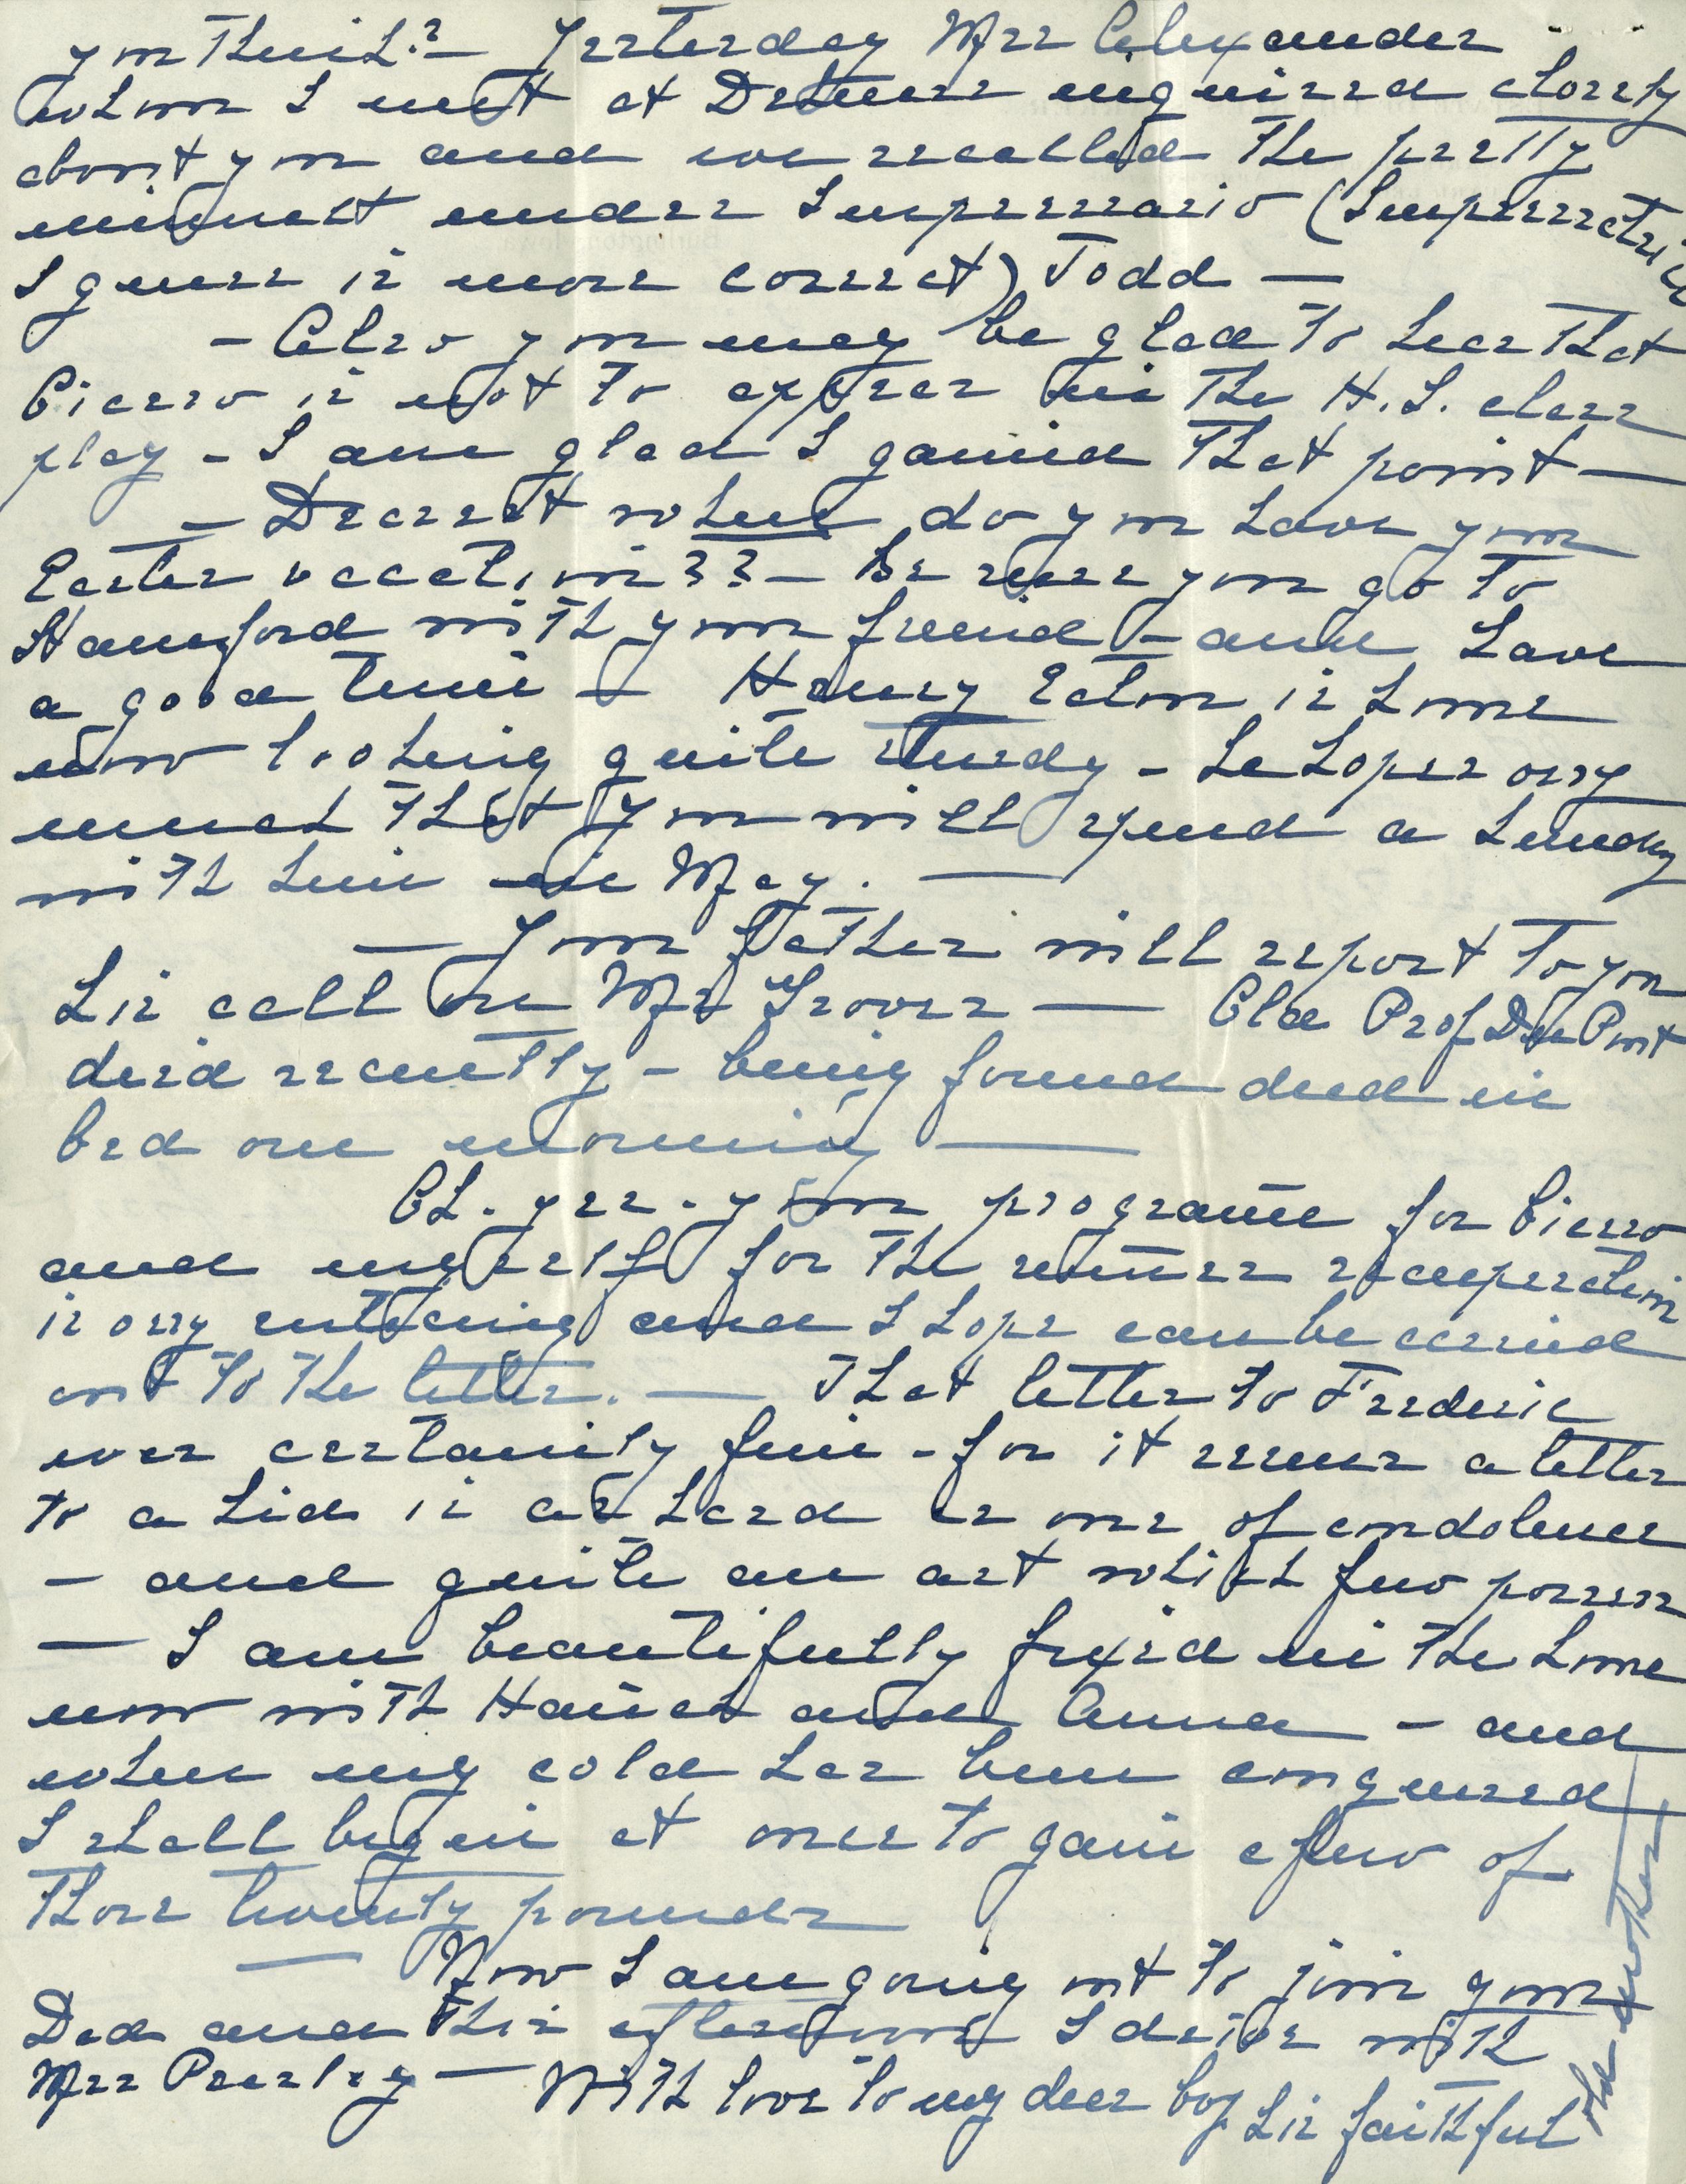 you think? – Yesterday Mrs Alexander
whom I met at Delmers inquired closely
about you and we recalled the pretty
minuet under Impressario (Impressatrice
I guess is more correct) Todd –
– Also you may be glad to hear that
Cicero is not to appear in the H.S. class
play – I am glad I gained that point –
– Dearest when do you have your
Easter vacation?? – Be sure you go to
Hanford with your friend – and have
a good time – Henry Eaton is home
now looking quite sturdy – he hopes very
much that you will spend a Sunday
with him in May. –
– Your father will report to you
his call on Mr Grover – Old Prof Du Pont
died recently – being found dead in
bed one morning –
Oh. yes. your programe for Cicero
and myself for the summer recuperation
is very enticing and I hope can be carried
out to the letter. – That letter to Frederic
was certainly fine – for it seems a letter
to a kid is as hard as one of condolence
– and quite an art which few possess
– I am beautifully fixed in the home
now with Hannah and Anna – and
when my cold has been conquered
I shall begin at once to gain a few of
those twenty pounds
– Now I am going out to join your
Dad and this afternoon I drive with
Mrs Presley – With love to my dear boy his faithful
old mother